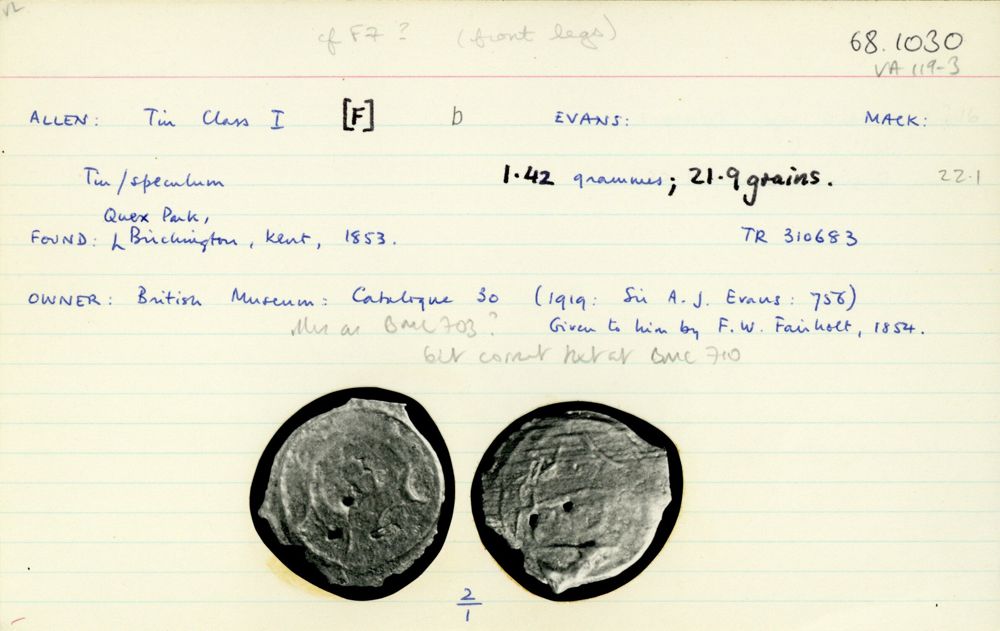 VL
cf F7 ? (front legs) 68.1030
VA 119-3
ALLEN: Tin Class I [F] b EVANS: MACK:
Tin/speculum 1.42 grammes; 21.9 grains. 22.1
Quex Park,
FOUND: Birchington, Kent, 1853. TR 310683
OWNER: British Museum: Catalogue 30 (1919: Sir A. J. Evans: 756)
as BMC 703? Given to him by F. W. Fairholt, 1854.
but cornut not at BMC 710
2
1